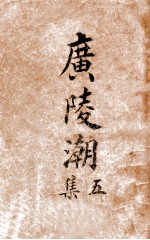 廣陵潮
五集